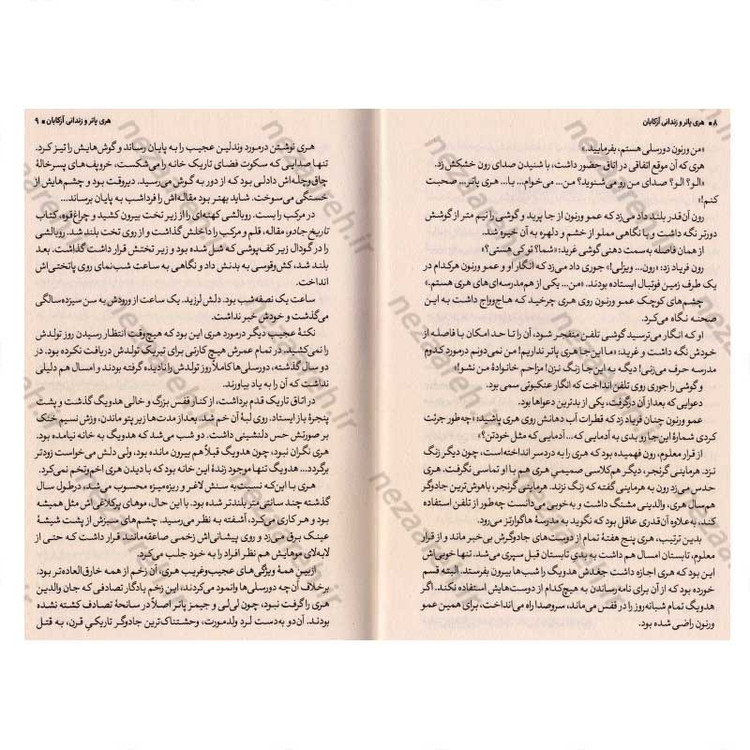 ۸ ■ هری پاتر و زندانی آزکابان
«من ورنون دورسلی هستم، بفرمایید.»
هری که آن موقع اتفاقی در اتاق حضور داشت، با شنیدن صدای رون خشکش زد.
«الو؟ الو؟ صدای من رو می‌شنوید؟ من... می‌خوام... با... هری پاتر... صحبت
کنم!»
رون آن‌قدر بلند داد می‌زد که عمو ورنون از جا پرید و گوشی را نیم متر از گوشش
دورتر نگه داشت و با نگاهی مملو از خشم و دلهره به آن خیره شد.
از همان فاصله به‌سمت دهنی گوشی غرید: «شما؟ تو کی هستی؟»
رون فریاد زد: «رون... ویزلی!» جوری داد می‌زد که انگار او و عمو ورنون هرکدام در
یک طرف زمین فوتبال ایستاده بودند. «من... یکی از هم‌مدرسه‌ای‌های هری هستم.»
چشم‌های کوچک عمو ورنون روی هری چرخید که هاج‌وواج داشت به این
صحنه نگاه می‌کرد.
او که انگار می‌ترسید گوشی تلفن منفجر شود، آن را تا حد امکان با فاصله از
خودش نگه داشت و غرید: «ما این‌جا هری پاتر نداریم! من نمی‌دونم درمورد کدوم
مدرسه حرف می‌زنی! دیگه به این‌جا زنگ نزن! مزاحم خانوادهٔ من نشو!»
و گوشی را جوری روی تلفن انداخت که انگار عنکبوتی سمی بود.
دعوایی که بعداز آن درگرفت، یکی از بدترین دعواها بود.
عمو ورنون چنان فریاد زد که قطرات آب دهانش روی هری پاشید: «چه‌طور جرئت
کردی شمارهٔ این‌جا رو بدی به آدمایی که... آدمایی که مثل خودتن؟»
از قرار معلوم، رون فهمیده بود که هری را به دردسر انداخته است، چون دیگر زنگ
نزد. هرماینی گرنجر، دیگر هم‌کلاسی صمیمی هری هم با او تماسی نگرفت. هری
حدس می‌زد رون به هرماینی گفته که زنگ نزند. هرماینی گرنجر، باهوش‌ترین جادوگر
هم‌سال هری، والدینی مشنگ داشت و به‌خوبی می‌دانست چه‌طور از تلفن استفاده
کند، به‌علاوه آن‌قدری عاقل بود که نگوید به مدرسهٔ هاگوارتز می‌رود.
بدین ترتیب، هری پنج هفتهٔ تمام از دوست‌های جادوگرش بی‌خبر ماند و از قرار
معلوم، تابستان امسال هم داشت به بدی تابستان قبل سپری می‌شد. تنها خوبی‌اش
این بود که هری اجازه داشت جغدش هدویگ را شب‌ها بیرون بفرستد. البته قسم
خورده بود که از آن برای نامه‌رساندن به هیچ‌کدام از دوست‌هایش استفاده نکند. اگر
هدویگ تمام شبانه‌روز را در قفس می‌ماند، سروصدا راه می‌انداخت، برای همین عمو
ورنون راضی شده بود.
هری پاتر و زندانی آزکابان ■ ۹
هری نوشتن درمورد وندلین عجیب را به پایان رساند و گوش‌هایش را تیز کرد.
تنها صدایی که سکوت فضای تاریک خانه را می‌شکست، خروپف‌های پسرخالهٔ
چاق‌وچله‌اش دادلی بود که از دور به گوش می‌رسید. دیروقت بود و چشم‌هایش از
خستگی می‌سوخت. شاید بهتر بود مقاله‌اش را فرداشب به پایان برساند...
در مرکب را بست. روبالشی کهنه‌ای را از زیر تخت بیرون کشید و چراغ‌قوه، کتاب
تاریخ جادو، مقاله، قلم و مرکب را داخلش گذاشت و از روی تخت بلند شد. روبالشی
را در گودال زیر کف‌پوشی که شل شده بود و زیر تختش قرار داشت گذاشت. بعد
بلند شد، کش‌وقوسی به بدنش داد و نگاهی به ساعت شب‌نمای روی پاتختی‌اش
انداخت.
ساعت یک نصفه‌شب بود. دلش لرزید. یک ساعت از ورودش به سن سیزده‌سالگی
می‌گذشت و خودش خبر نداشت.
نکتهٔ عجیب دیگر درمورد هری این بود که هیچ‌وقت انتظار رسیدن روز تولدش
را نمی‌کشید. در تمام عمرش هیچ کارتی برای تبریک تولدش دریافت نکرده بود. در
دو سال گذشته، دورسلی‌ها کاملاً روز تولدش را نادیده گرفته بودند و امسال هم دلیلی
نداشت که آن را به یاد بیاورند.
در اتاق تاریک قدم برداشت، از کنار قفس بزرگ و خالی هدویگ گذشت و پشت
پنجرهٔ باز ایستاد. روی لبهٔ آن خم شد. بعداز مدت‌ها زیر پتو ماندن، وزش نسیم خنک
بر صورتش حس دلنشینی داشت. دو شب می‌شد که هدویگ به خانه نیامده بود.
هری نگران نبود، چون هدویگ قبلاً هم بیرون مانده بود، ولی دلش می‌خواست زودتر
برگردد... هدویگ تنها موجود زندهٔ این خانه بود که با دیدن هری اخم‌وتخم نمی‌کرد.
هری با این‌که نسبت‌به سنش لاغر و ریزه‌میزه محسوب می‌شد، درطول سال
گذشته چند سانتی‌متر بلندتر شده بود. با این حال، موهای پرکلاغی‌اش مثل همیشه
بود و هر کاری می‌کرد، آشفته به نظر می‌رسید. چشم‌های سبزش از پشت شیشهٔ
عینک برق می‌زد و روی پیشانی‌اش زخمی صاعقه‌مانند قرار داشت که حتی از
لابه‌لای موهایش هم نظر افراد را به خود جلب می‌کرد.
ازبین همهٔ ویژگی‌های عجیب‌وغریب هری، آن زخم از همه خارق‌العاده‌تر بود.
برخلاف آن‌چه دورسلی‌ها وانمود می‌کردند، این زخم یادگار تصادفی که جان والدین
هری را گرفت نبود، چون لی‌لی و جیمز پاتر اصلاً در سانحهٔ تصادف کشته نشده
بودند. آن‌دو به‌دست لرد ولدمورت، وحشتناک‌ترین جادوگر تاریکی قرن، به قتل
nezaareh.ir